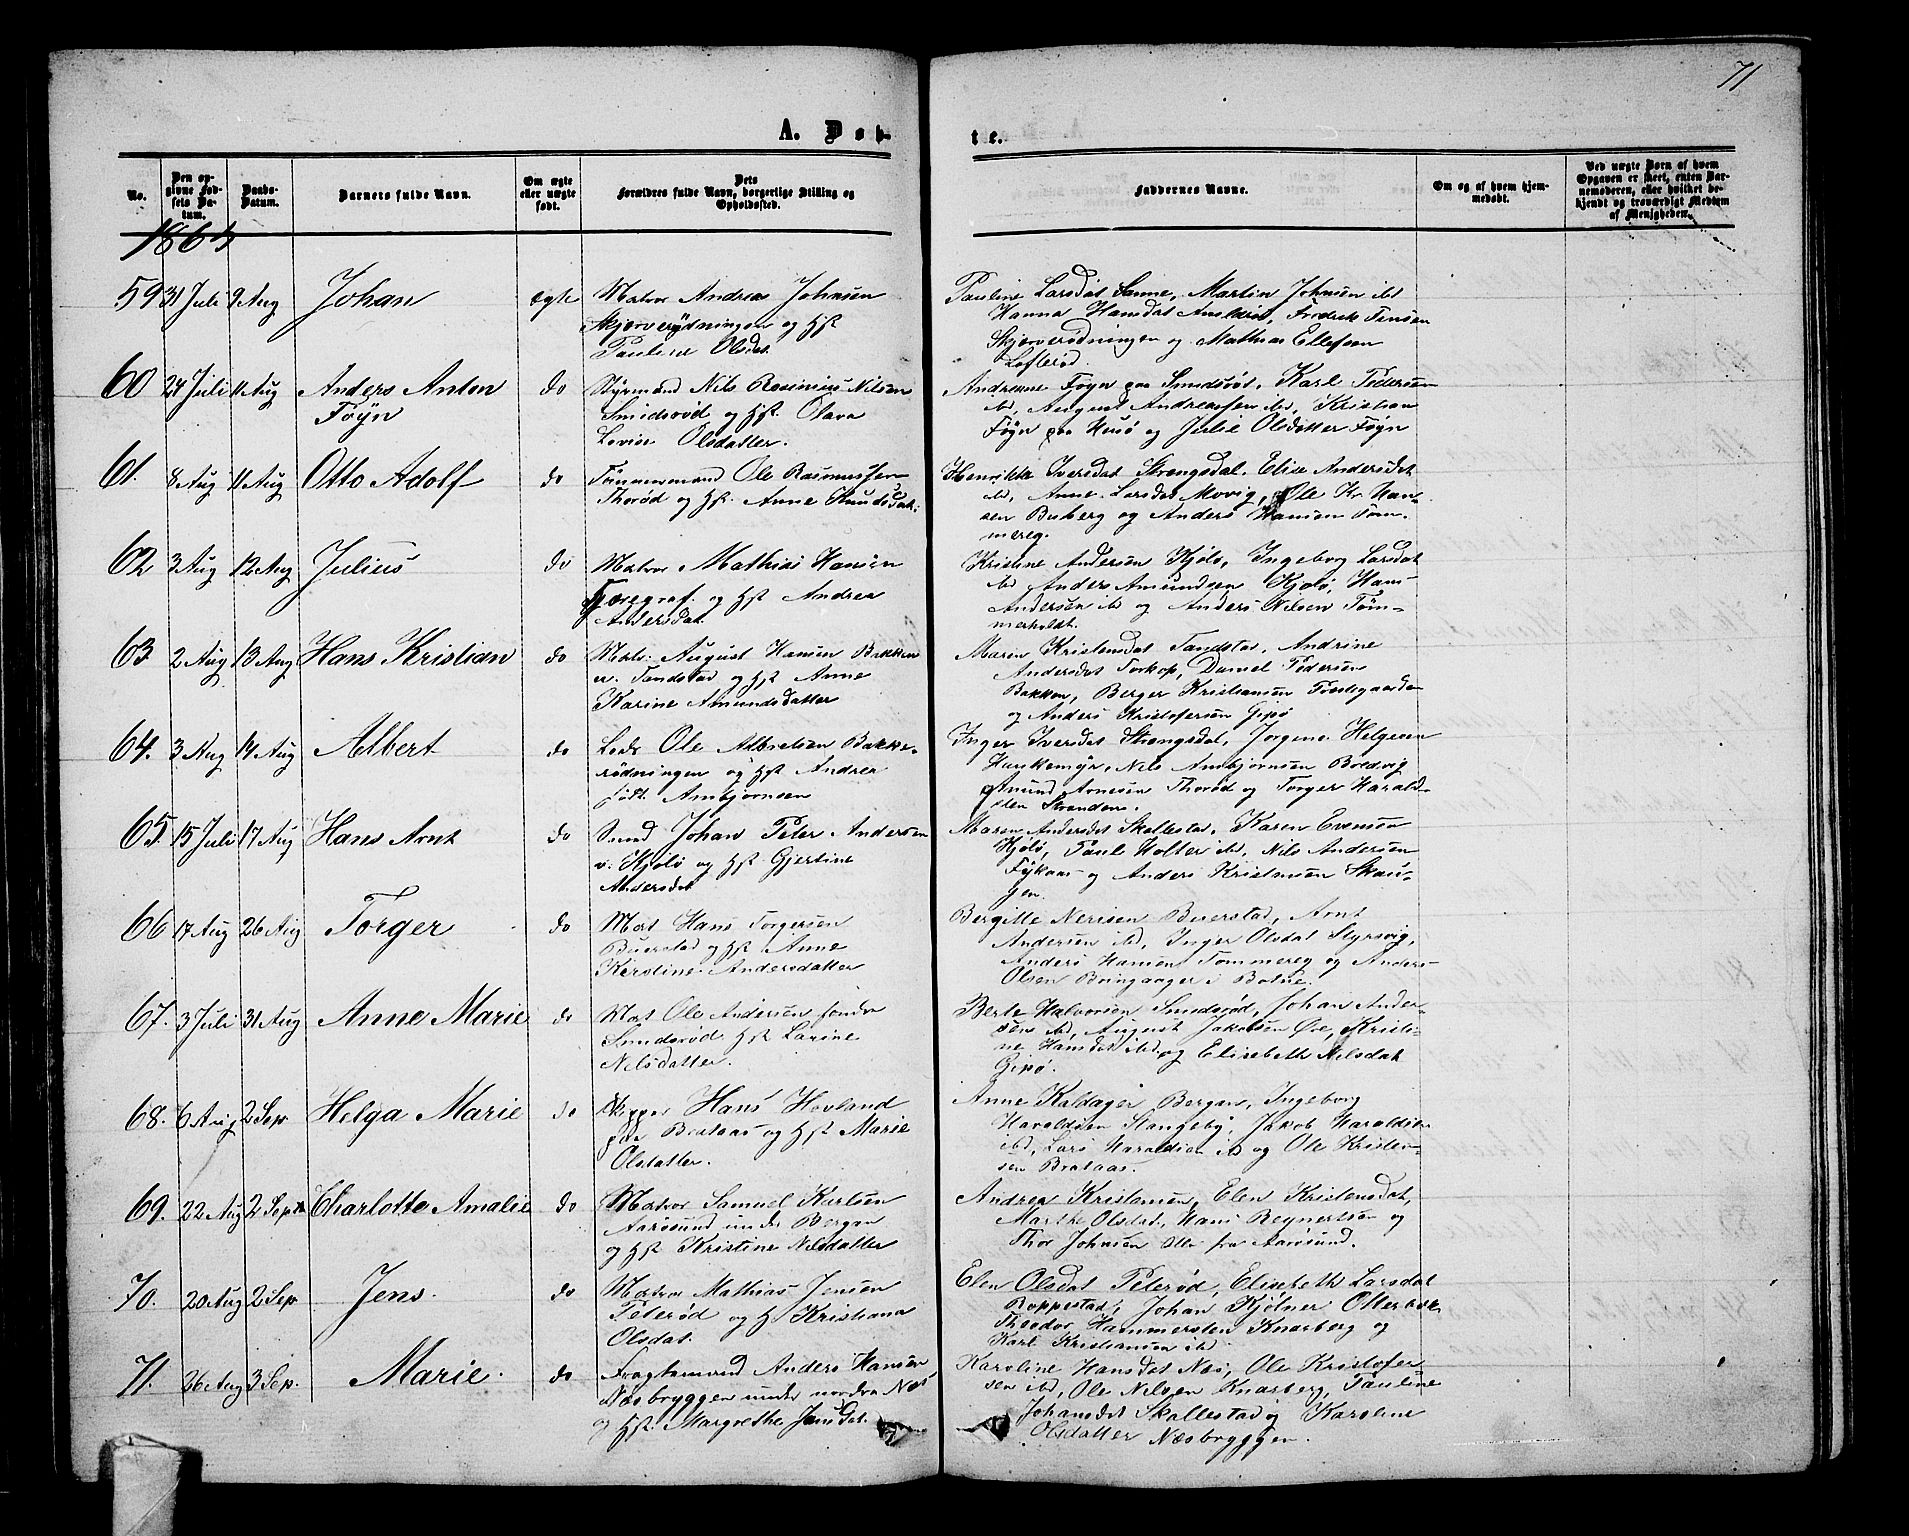 71
A. Døb-
te.
No.
Den opgivne Fødsels Datum.
Daabs-Datum.
Barnets fulde Navn.
Om ægte eller uægte født.
Dets Forældres fulde Navn, borgerlige Stilling og Opholdssted.
Faddernes Navne.
Om og af hvem hjemmedøbt.
Ved uægte Børn af hvem Opgaven er skeet, enten Barnemoderen, eller hvilket bekjendt og troværdigt Medlem af Menigheden.
59 31 Juli 9 Aug Johan ægte Matros Andreas Johnsen
Skjærverødningen og Hst
Pauline Olsdat.
Pauline Larsdat Sanne, Martin Johnsen ibd
Hanna Hansdat Fredrik Jensen
Skjærverødningen og Mathias Ellefsen
Lofterød
60 24 Juli 11 Aug Anders Anton do Styrmand Nils Rasmus Nilsen
Føyn
Smidsrød og Hst. Olava
Lovise Olsdatter.
Andreane Føyn paa Smidsrød, Karl Pedersen
ibd, August Andreassen ibd, Kristian
Føyn paa Husø og Julie Olsdatter Føyn
61. 8 Aug 11 Aug Otto Adolf do Tømmermand Ole Rasmussen
Thorød og Hst. Anne Knudsdat.
Henrikke Iversdat Strengsdal, Elise Andersdat
ibd, Anne Larsdat Movig, Ole Kr Han-
sen Buberg og Anders Hansen Tøm-
mereg.
62 3 Aug 12 Aug Julius do Matros Mathias Hansen
og Hst Andrea
Andersdat.
Kristine Andersen Kjøle, Ingeborg Larsdat
ibd Anders Amundsen Kjøle, Hans
Andersen ibd og Anders Nilsen Tøm-
merholdt.
63 2 Aug 13 Aug Hans Kristian do Matr. August Hansen Bakken
u. Tandstad og Hst Anne
Karine Amundsdatter
Maren Kristensdat Tandstad, Andrine
Andersdat Torkop, Daniel Pedersen
Bakken, Berger Kristiansen
og Anders Kristofersen Gipø
64. 3 Aug 14 Aug Albert do Lods Ole Albretsen Bakke-
rødningen og Hst Andrea
født Ambjørnsen
Inger Iversdat Strengsdal, Jørgine Helgesen
Haukemyr, Nils Ambjørnsen Bredvig
Amund Arnesen Thorød og Torger Harald-
sen Stranden.
65. 15 Juli 17 Aug Hans Arnt do Smed Johan Peter Andersen
v. Kjøle og Hst Gjertine
Andersdat
Maren Andersdat Skallestad, Karen Evensen
Kjøle, Paul Holter ibd, Nils Andersen
Fykaas og Anders Kristensen Skau-
gen.
66 17 Aug 26 Aug Torger do Mat Hans Torgersen
Buerstad og Hst Anne
Karoline Andersdatter
Bergitte Nerisen Buerstad, Arnt
Andersen ibd, Inger Olsdat Styrsvig,
Anders Hansen Tømmereg og Anders
Olsen Bringaager i Botne.
67. 3 Juli 31 Aug Anne Marie do Mat Ole Andersen søndre
Smidsrød Hst Larine
Nilsdatter.
Berte Halvorsen Smidsrød, Johan Ander-
sen ibd, August Jakobsen Øre, Kristi-
ne Hansdat ibd og Elisebeth Nilsdat
Gipø.
68. 6 Aug 2 Sep Helga Marie do Skipper Hans Hovland
paa Brataas og Hst Marie
Olsdatter.
Anne Kaldager Bergan, Ingeborg
Haraldsen Stangeby, Jakob Haraldsen
ibd, Lars Haraldsen ibd og Ole Kristen-
sen Brataas.
69. 22 Aug 2 Sept Charlotte Amalie do Matros Samuel Karlsen
Aarøsund under Bergan
og Hst Kristine Nilsdatter
Andrea Kristensen, Elen Kristensdat,
Marthe Olsdat, Hans Reynertsen og
Thor Johnsen alle fra Aarøsund.
70. 20 Aug 2 Sep Jens. do Matros Mathias Jensen
Peterød og Hst Kristiana
Olsdat.
Elen Olsdat Peterød, Elisebeth Larsdat
Roppestad, Johan Kjølner Otterbæk
Theodor Hammersten Knarberg og
Karl Kristiansen ibd
71. 26 Aug 3 Sep. Marie. do Fragtemand Anders Hansen
Næsbryggen under nordre Næs
og Hst. Margrethe Jensdat.
Karoline Hansdat Næs, Ole Kristofer-
sen ibd, Ole Nilsen Knarberg, Pauline
Johansdat Skallestad og Karoline
Olsdatter Næsbryggen.